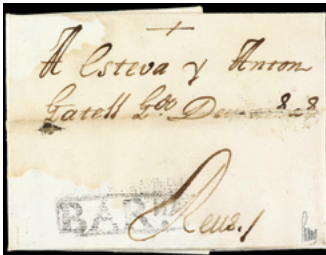 A Esteva y Anton
Gatell G.do
BARna
Reus./